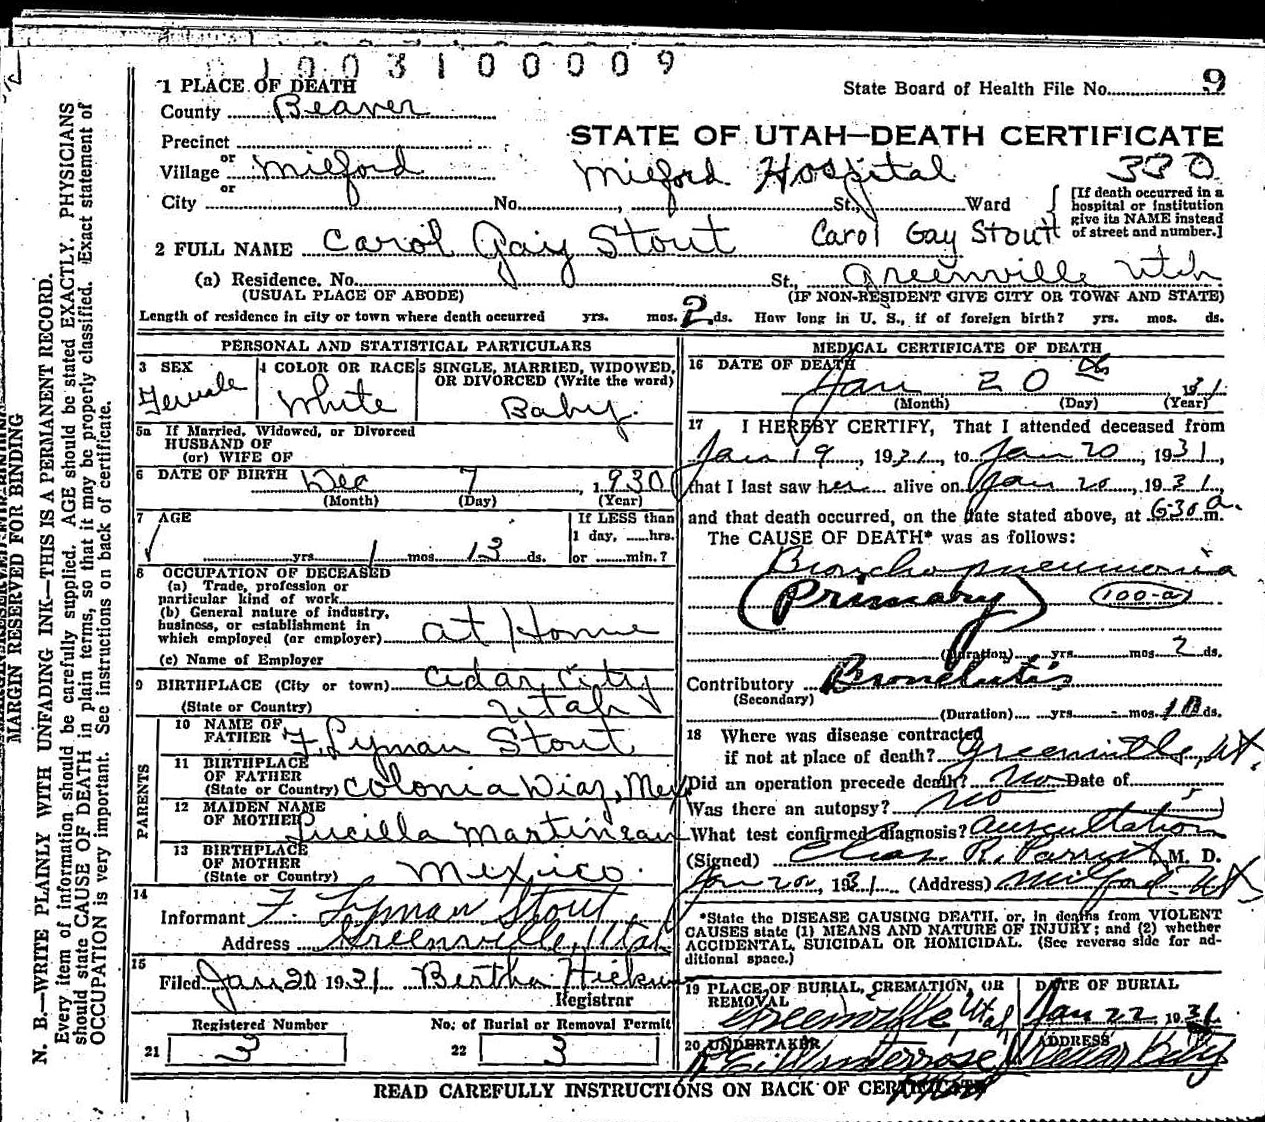 1003100009
1 PLACE OF DEATH
State Board of Health File No. 9
County Beaver
STATE OF UTAH—DEATH CERTIFICATE
Precinct
or
Village Milford
Milford Hospital 330
or
City No. , St., Ward
[If death occurred in a
hospital or institution
give its NAME instead
of street and number.]
2 FULL NAME Carol Gay Stout Carol Gay Stout
(a) Residence. No. St., Greenville Utah
(USUAL PLACE OF ABODE) (IF NON-RESIDENT GIVE CITY OR TOWN AND STATE)
Length of residence in city or town where death occurred yrs. mos. 2 ds. How long in U. S., if of foreign birth? yrs. mos. ds.
PERSONAL AND STATISTICAL PARTICULARS
3 SEX
Female
4 COLOR OR RACE
White
5 SINGLE, MARRIED, WIDOWED,
OR DIVORCED (Write the word)
Baby
5a If Married, Widowed, or Divorced
HUSBAND OF
(or) WIFE OF
6 DATE OF BIRTH Dec 7, 1930
(Month) (Day) (Year)
7 AGE
yrs 1 mos 13 ds.
If LESS than
1 day, hrs.
or min.?
8 OCCUPATION OF DECEASED
(a) Trade, profession or
particular kind of work
(b) General nature of industry,
business, or establishment in
which employed (or employer) at Home
(c) Name of Employer
9 BIRTHPLACE (City or town) Cedar City
(State or Country) Utah
PARENTS
10 NAME OF
FATHER F. Lyman Stout
11 BIRTHPLACE
OF FATHER
(State or Country) Colonia Diaz, Mex
12 MAIDEN NAME
OF MOTHER Lucilla Martineau
13 BIRTHPLACE
OF MOTHER
(State or Country) Mexico.
14
Informant F. Lyman Stout
Address Greenville, Utah
15
Filed Jan 20 1931 Bertha
Registrar
Registered Number No. of Burial or Removal Permit
21 3 22 3
MEDICAL CERTIFICATE OF DEATH
16 DATE OF DEATH
Jan 20 th 1931
(Month) (Day) (Year)
17 I HEREBY CERTIFY, That I attended deceased from
Jan 19, 1931, to Jan 20, 1931,
that I last saw her alive on Jan 20, 1931,
and that death occurred, on the date stated above, at 630 a.m.
The CAUSE OF DEATH* was as follows:
Bronchopneumonia
(Primary) 100-a
(Duration) yrs. mos 2 ds.
Contributory Bronchitis
(Secondary)
(Duration) yrs. mos. 10 ds.
18 Where was disease contracted
if not at place of death? Greenville, Ut.
Did an operation precede death? No Date of
Was there an autopsy? No
What test confirmed diagnosis? Auscultation
(Signed) R. Parrish, M. D.
Jan 20, 1931 (Address) Milford, Ut
*State the DISEASE CAUSING DEATH, or, in deaths from VIOLENT
CAUSES state (1) MEANS AND NATURE OF INJURY; and (2) whether
ACCIDENTAL, SUICIDAL OR HOMICIDAL. (See reverse side for ad-
ditional space.)
19 PLACE OF BURIAL, CREMATION, OR
REMOVAL
Greenville, Utah
DATE OF BURIAL
Jan 22, 1931
20 UNDERTAKER
Winterrose
ADDRESS
Cedar City
READ CAREFULLY INSTRUCTIONS ON BACK OF CERTIFICATE
MARGIN RESERVED FOR BINDING
N. B.—WRITE PLAINLY WITH UNFADING INK—THIS IS A PERMANENT RECORD.
Every item of information should be carefully supplied. AGE should be stated EXACTLY. PHYSICIANS
should state CAUSE OF DEATH in plain terms, so that it may be properly classified. Exact statement of
OCCUPATION is very important. See instructions on back of certificate.